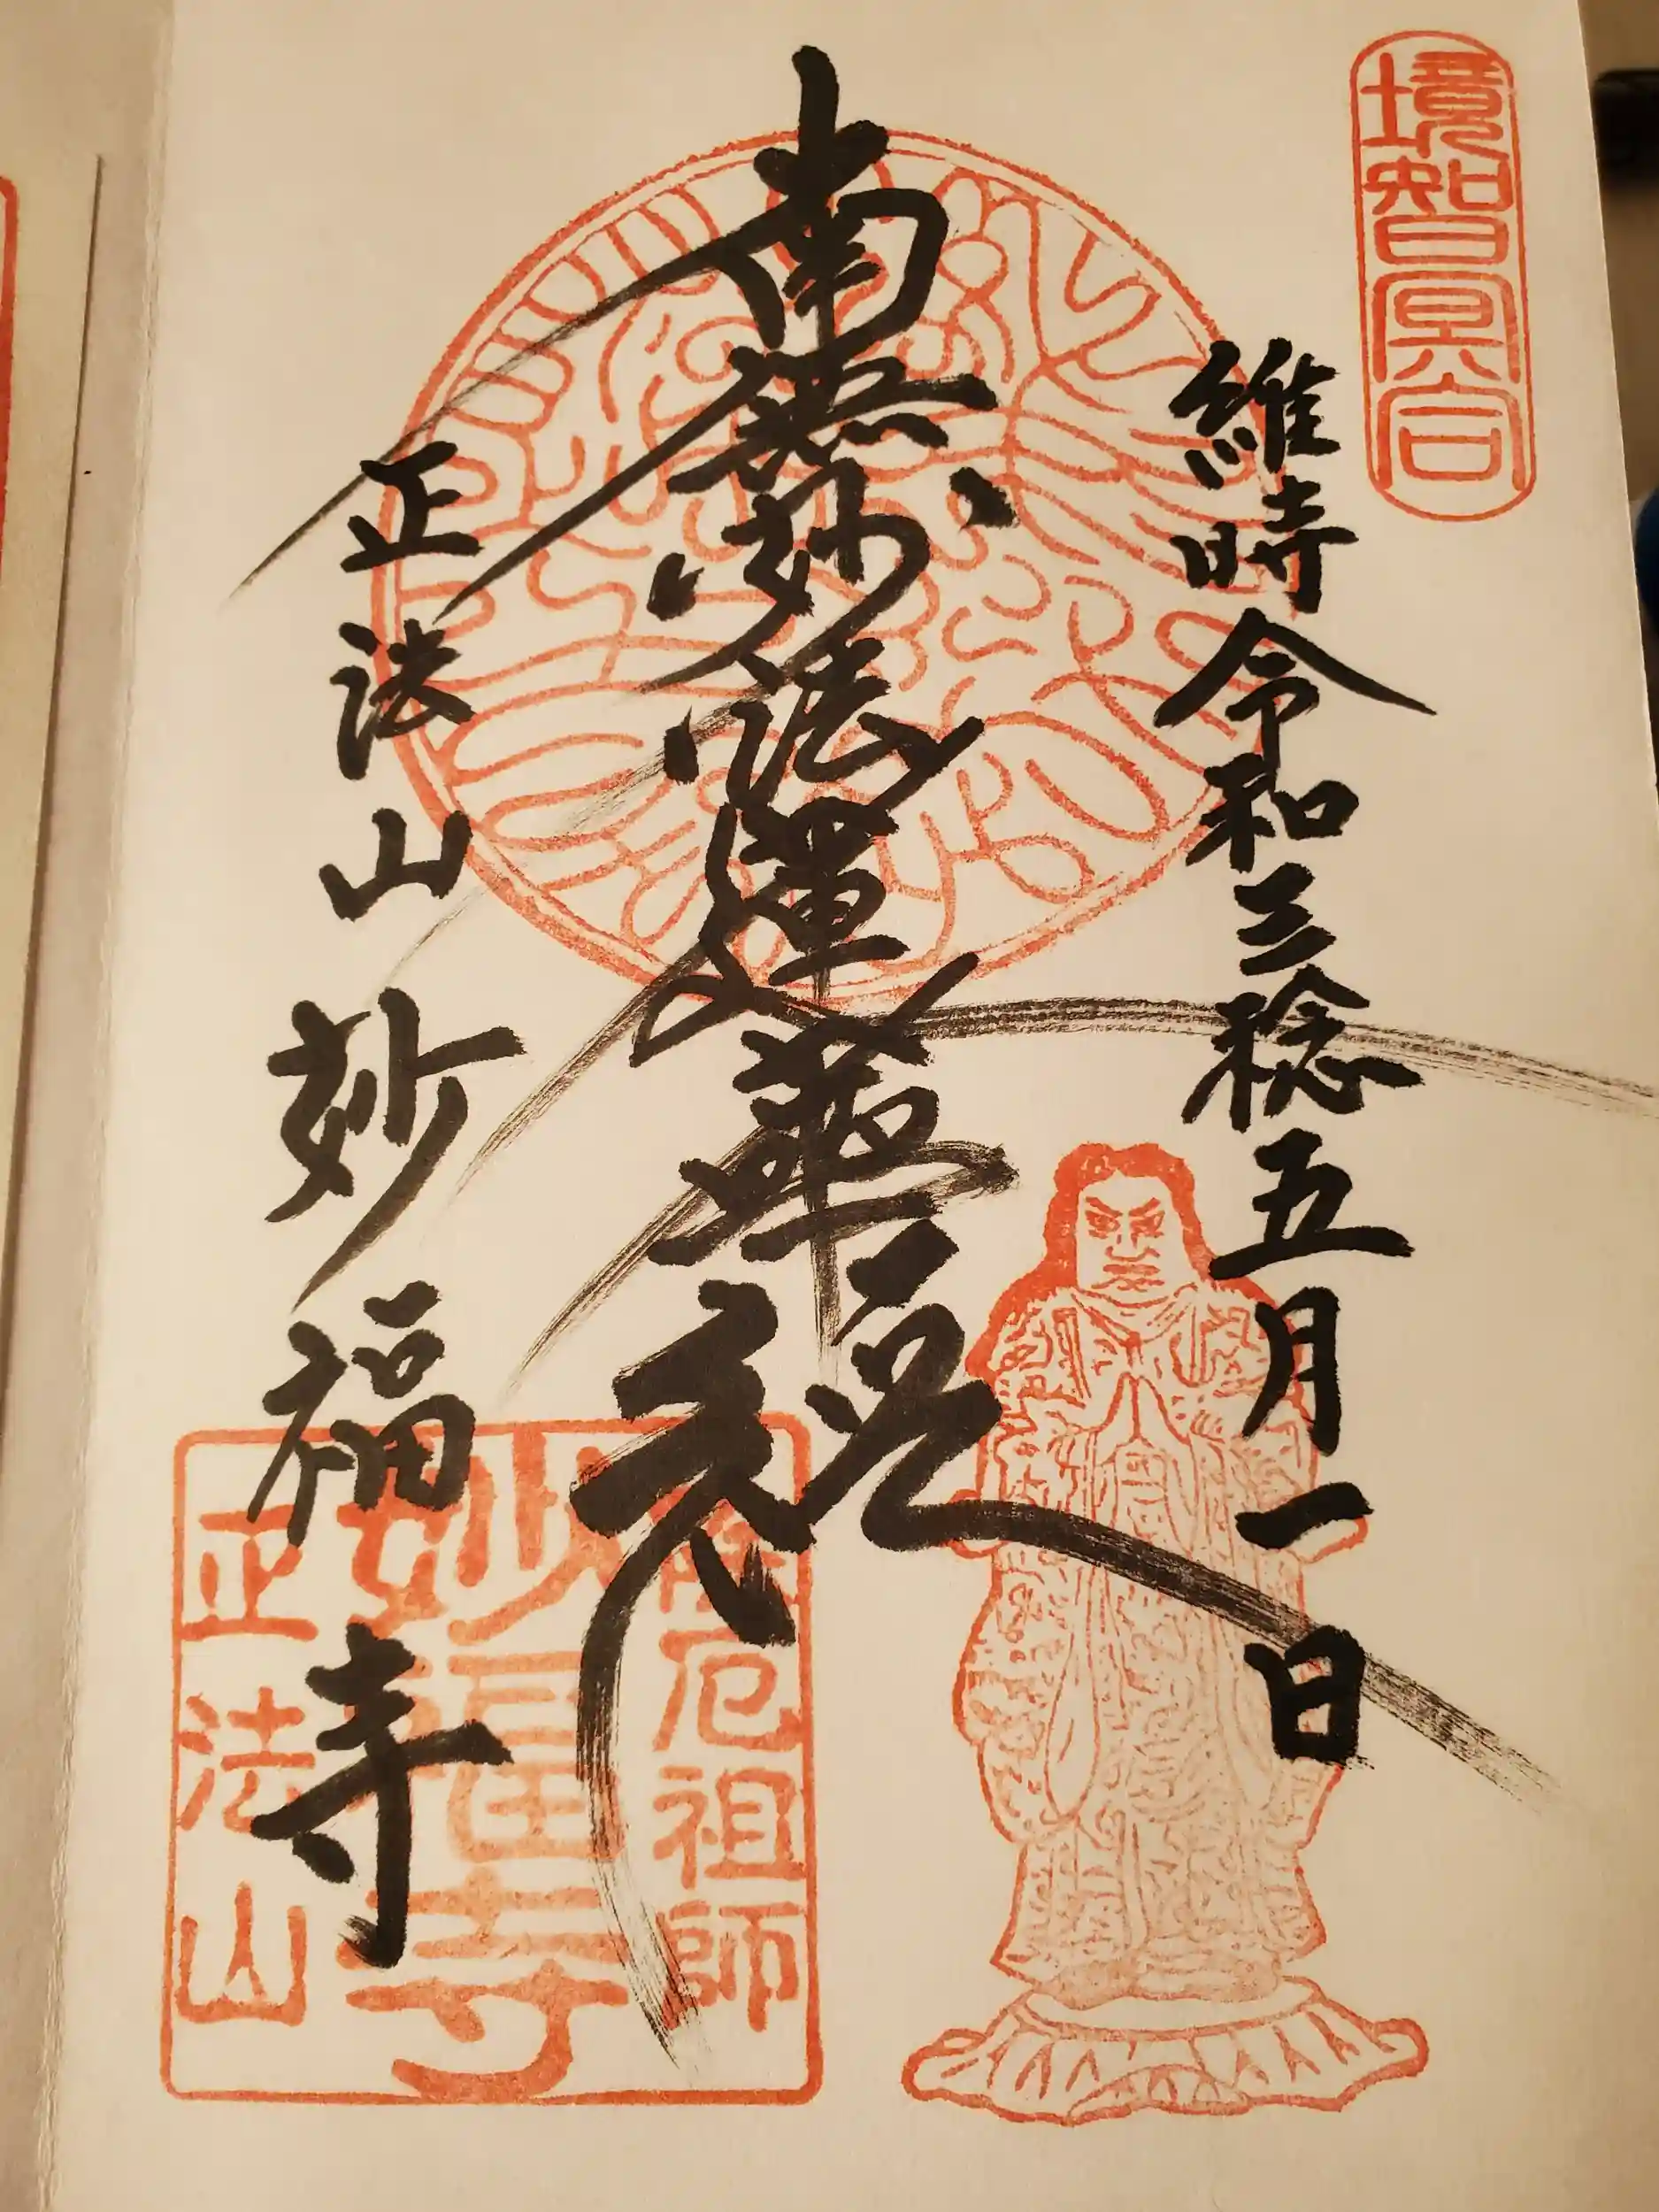 境智冥合
維時令和三稔五月一日
南無妙法蓮華経
正法山妙福寺
厄祖師
妙福寺
正法山